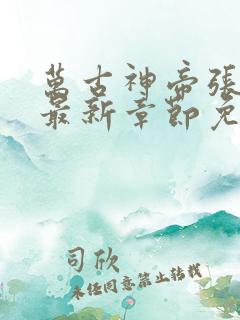 萬古神帝張
最新章節免
司欣
未经同意禁止转载